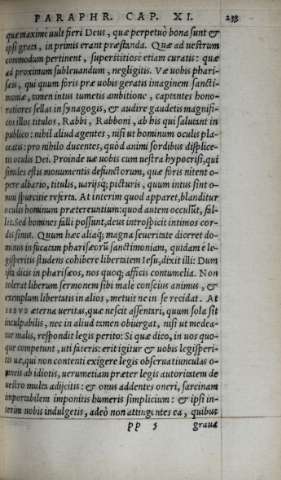 PARAPHR. CAP. XI. 233
quæ maxime uult fieri Deus, quæ perpetuò bona sunt &
ipsi grata, in primis erant præstanda. Quæ ad uestrum
commodum pertinent, superstitiose etiam curatis: quæ
ad proximum subleuandum, negligitis. Væ uobis phari-
sæis, qui quum foris præ uobis geratis imaginem sancti-
moniæ, tamen intus tumetis ambitione, captantes hono-
ratiores sellas in synagogis, & audire gaudetis magnifi-
cos illos titulos, Rabbi, Rabboni, ab his qui salutant in
publico: nihil aliud agentes, nisi ut hominum oculis pla-
ceatis: pro nihilo ducentes, quòd animi sordibus displice-
tis oculis Dei. Proinde uæ uobis cum uestra hypocrisi, qui
similes estis monumentis defunctorum, quæ foris nitent o-
pere albario, titulis, uarijsq; picturis, quum intus sint o-
mni spurcitie referta. At interim quod apparet, blanditur
oculis hominum prætereuntium: quod autem occulit, fal-
lit. Sed homines falli possunt, deus introspicit intimos cor-
dis sinus. Quum hæc aliaq; magna seueritate diceret do-
minus in fucatam pharisæorū sanctimoniam, quidam è le-
gisperitis studens cohibere libertatem Iesu, dixit illi: Dum
ista dicis in pharisæos, nos quoq; afficis contumelia. Non
tolerat liberum sermonem sibi male conscius animus, &
exemplum libertatis in alios, metuit ne in se recidat. At
IESVS æterna ueritas, quæ nescit assentari, quum sola sit
inculpabilis, nec in aliud tamen obiurgat, nisi ut medea-
tur malis, respondit legis perito: Si quæ dico, in uos quo-
que competunt, uti faceris: erit igitur & uobis legisperi-
tis uæ, qui non contenti exigere legis obseruatiunculas o-
mneis ab idiotis, uerumetiam præter legis autoritatem de
uestro multa adijcitis: & onus addentes oneri, sarcinam
importabilem imponitis humeris simplicium: & ipsi in-
terim uobis indulgetis, adeò non attingentes ea, quibus
PP 5 graua